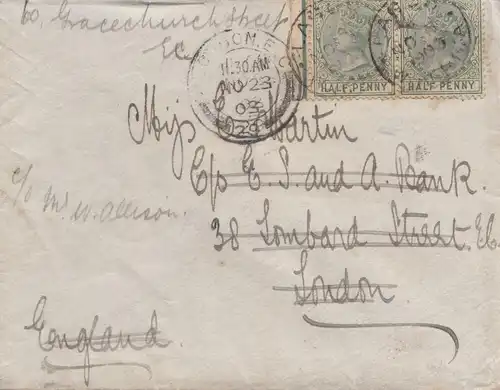 60, Gracechurch Street
E.C.
LONDON. E.C.
11.30 AM
NO 23
03
29
LAGOS
HALF-PENNY
HALF-PENNY
Miss Martin
C/o E. S. and A. Bank.
c/o Mr W. Allison.
38 Lombard Street. E.C.
London
England.